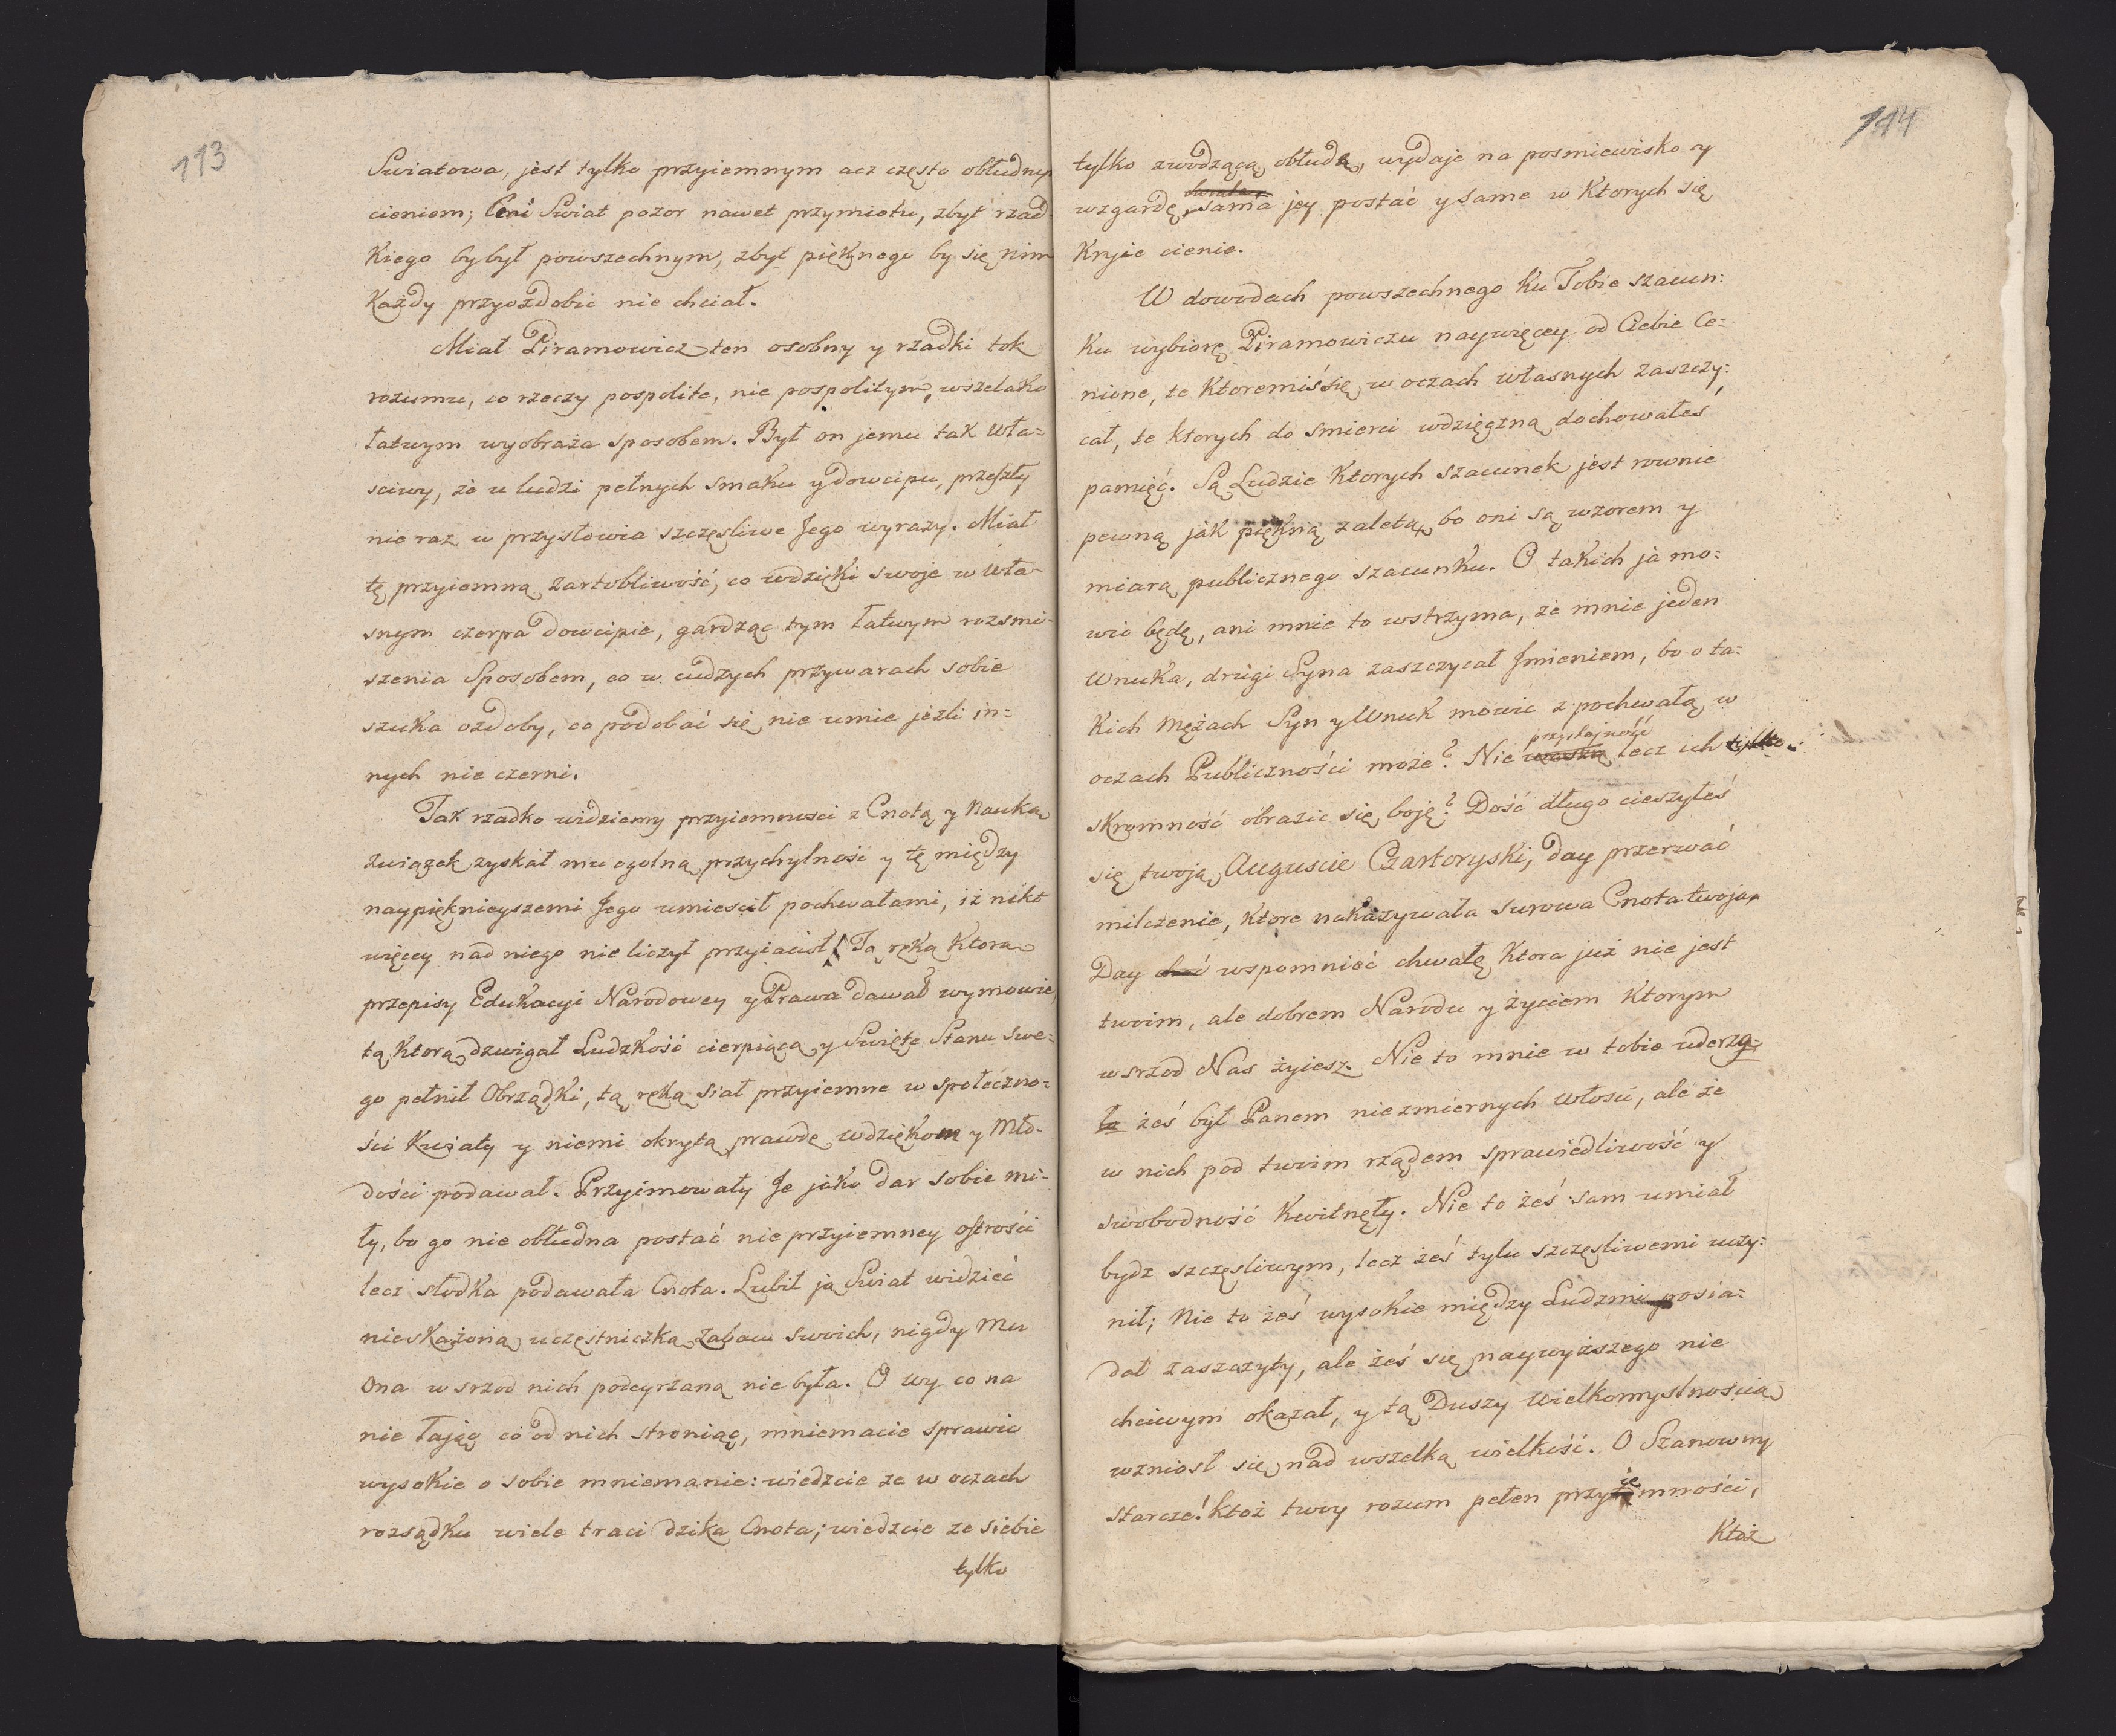 113
Swiatowa, jest tylko przyiemnym acz często obłudnym
cieniem; Ceni Swiat pozor nawet przymiotu, zbyt rzad-
kiego by był powszechnym, zbyt pięknego by się nim
Każdy przyozdobić nie chciał.
Miał Piramowicz ten osobny y rzadki tok
rozumu, co rzeczy pospolite, nie pospolitym, wszelako
łatwym wyobraża sposobem. Był on jemu tak wła=
sciwy, że u ludzi pełnych smaku y dowcipu, przeszły
nie raz w przysłowia szczęsliwe Jego wyrazy. Miał
tę przyiemną żartobliwość, co wdzięki swoje w wła-
snym czerpa dowcipie, gardząc tym łatwym rozsmi-
szenia Sposobem, co w cudzych przywarach sobie
szuka ozdoby, co podobać się nie umie jeżli in=
nych nie czerni.
Tak rzadko widziemy przyiemnosci z Cnotą y Nauką
związek zyskał mu ogolną przychylnosć y tę między
naypięknieyszemi Jego umiescił pochwałami, iż nikt
więcey nad niego nie liczył przyiaciół! Tą ręką Ktorą
przepisy Edukacyi Narodowey y Prawa dawał wymowie,
tą Ktorą dzwigał Ludzkość cierpiącą y Swięte Stanu swe=
go pełnił Obrządki, tą ręką siał przyiemne w społeczno=
ści Kwiaty y niemi okrytą prawdę wdziękom y Mło-
dości podawał. Przyimowały Je jako dar sobie mi-
ły, bo go nie obłudna postać nie przyiemney ostrości
lecz słodka podawała Cnota. Lubił ją Swiat widzieć
nieskażoną uczęstniczką zabaw swoich, nigdy Mu
Ona w srzod nich podeyrzaną nie była. O wy co na
nie łając co od nich stroniąc, mniemacie sprawić
wysokie o sobie mniemanie: wiedzcie ze w oczach
rozsądku wiele traci dzika Cnota; wiedzcie ze siebie
tylko
114
tylko zwodzącą obłudę, wydaje na posmiewisko y
wzgardę, sama jey postać y same w Ktorych się
Kryie cienie.
W dowodach powszechnego Ku Tobie szacun:
Ku wybiorę Piramowiczu naywięcey od Ciebie Ce=
nione, te Ktoremiś się w oczach własnych zaszczy:
cał, te Ktorych do smierci wdzięczną dochowałeś
pamięć. Są Ludzie Ktorych szacunek jest rownie
pewną jak piękną zaletą, bo oni są wzorem y
miarą publicznego szacunku. O takich ja mo=
wić będę, ani mnie to wstrzyma, że mnie jeden
Wnuka, drugi Syna zaszczycał Imieniem, bo o ta=
Kich Mężach Syn y Wnuk mowić z pochwałą w
oczach Publiczności może? Nie waszą lecz ich tylko
przystojność
skromność obrazić się boję? Dość długo cieszyłeś
się twoją Auguscie Czartoryski, day przerwać
milczenie, Ktore nakazywała surowa Cnota twoja.
Day choć wspomnieć chwałę Ktora już nie jest
twoim, ale dobrem Narodu y życiem Ktorym
w srzod Nas żyiesz. Nie to mnie w tobie uderza-
ła żeś był Panem niezmiernych Włosci, ale że
w nich pod twoim rządem sprawiedliwość y
swobodność Kwitnęły. Nie to żeś sam umiał
bydz szczęsliwym, lecz żeś tylu szczęsliwemi uczy:
nił; Nie to żeś wysokie między Ludzmi posia=
dał zaszczyty, ale żeś się naywyższego nie
chciwym okazał, y tą Duszy Wielkomyslnoscią
wzniosł się nad wszelką wielkość. O Szanowny
starcze! Ktoż twoy rozum pełen przyiemności,
Ktoż